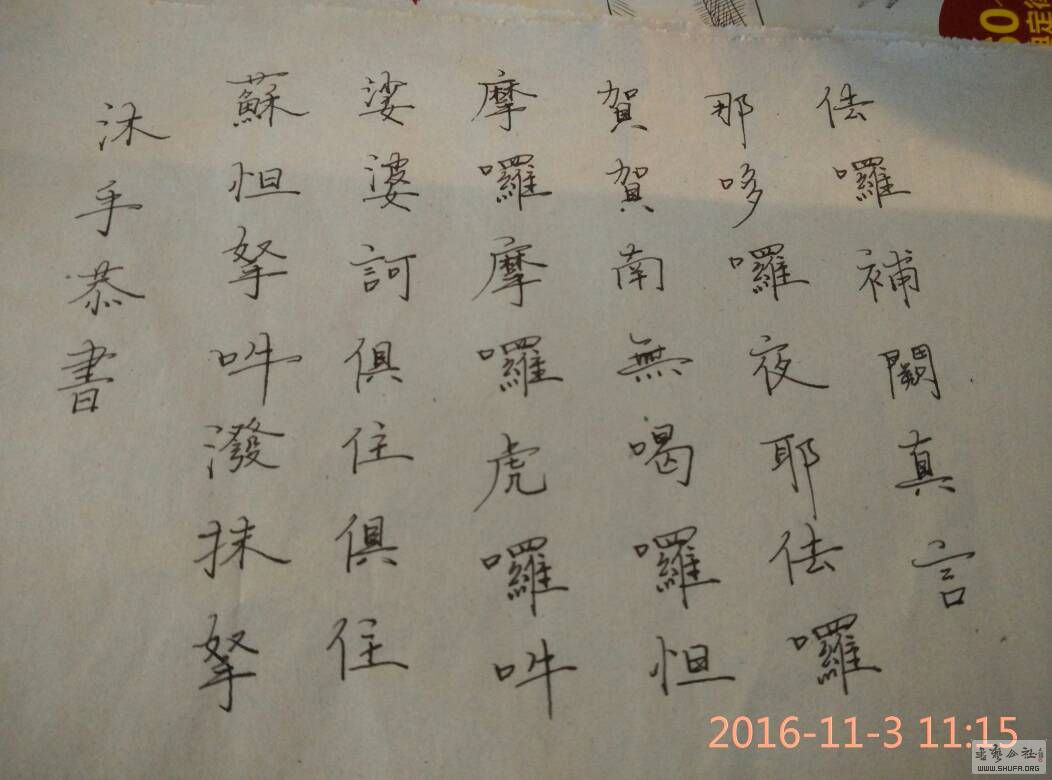 佉囉補闕真言
那哆囉夜耶佉囉
賀賀南無喝囉怛
摩囉摩囉虎囉吽
娑婆訶俱住俱住
蘇怛拏吽潑抹拏
沐手恭書
2016-11-3 11:15
書藝公社
WWW.SHUFA.ORG